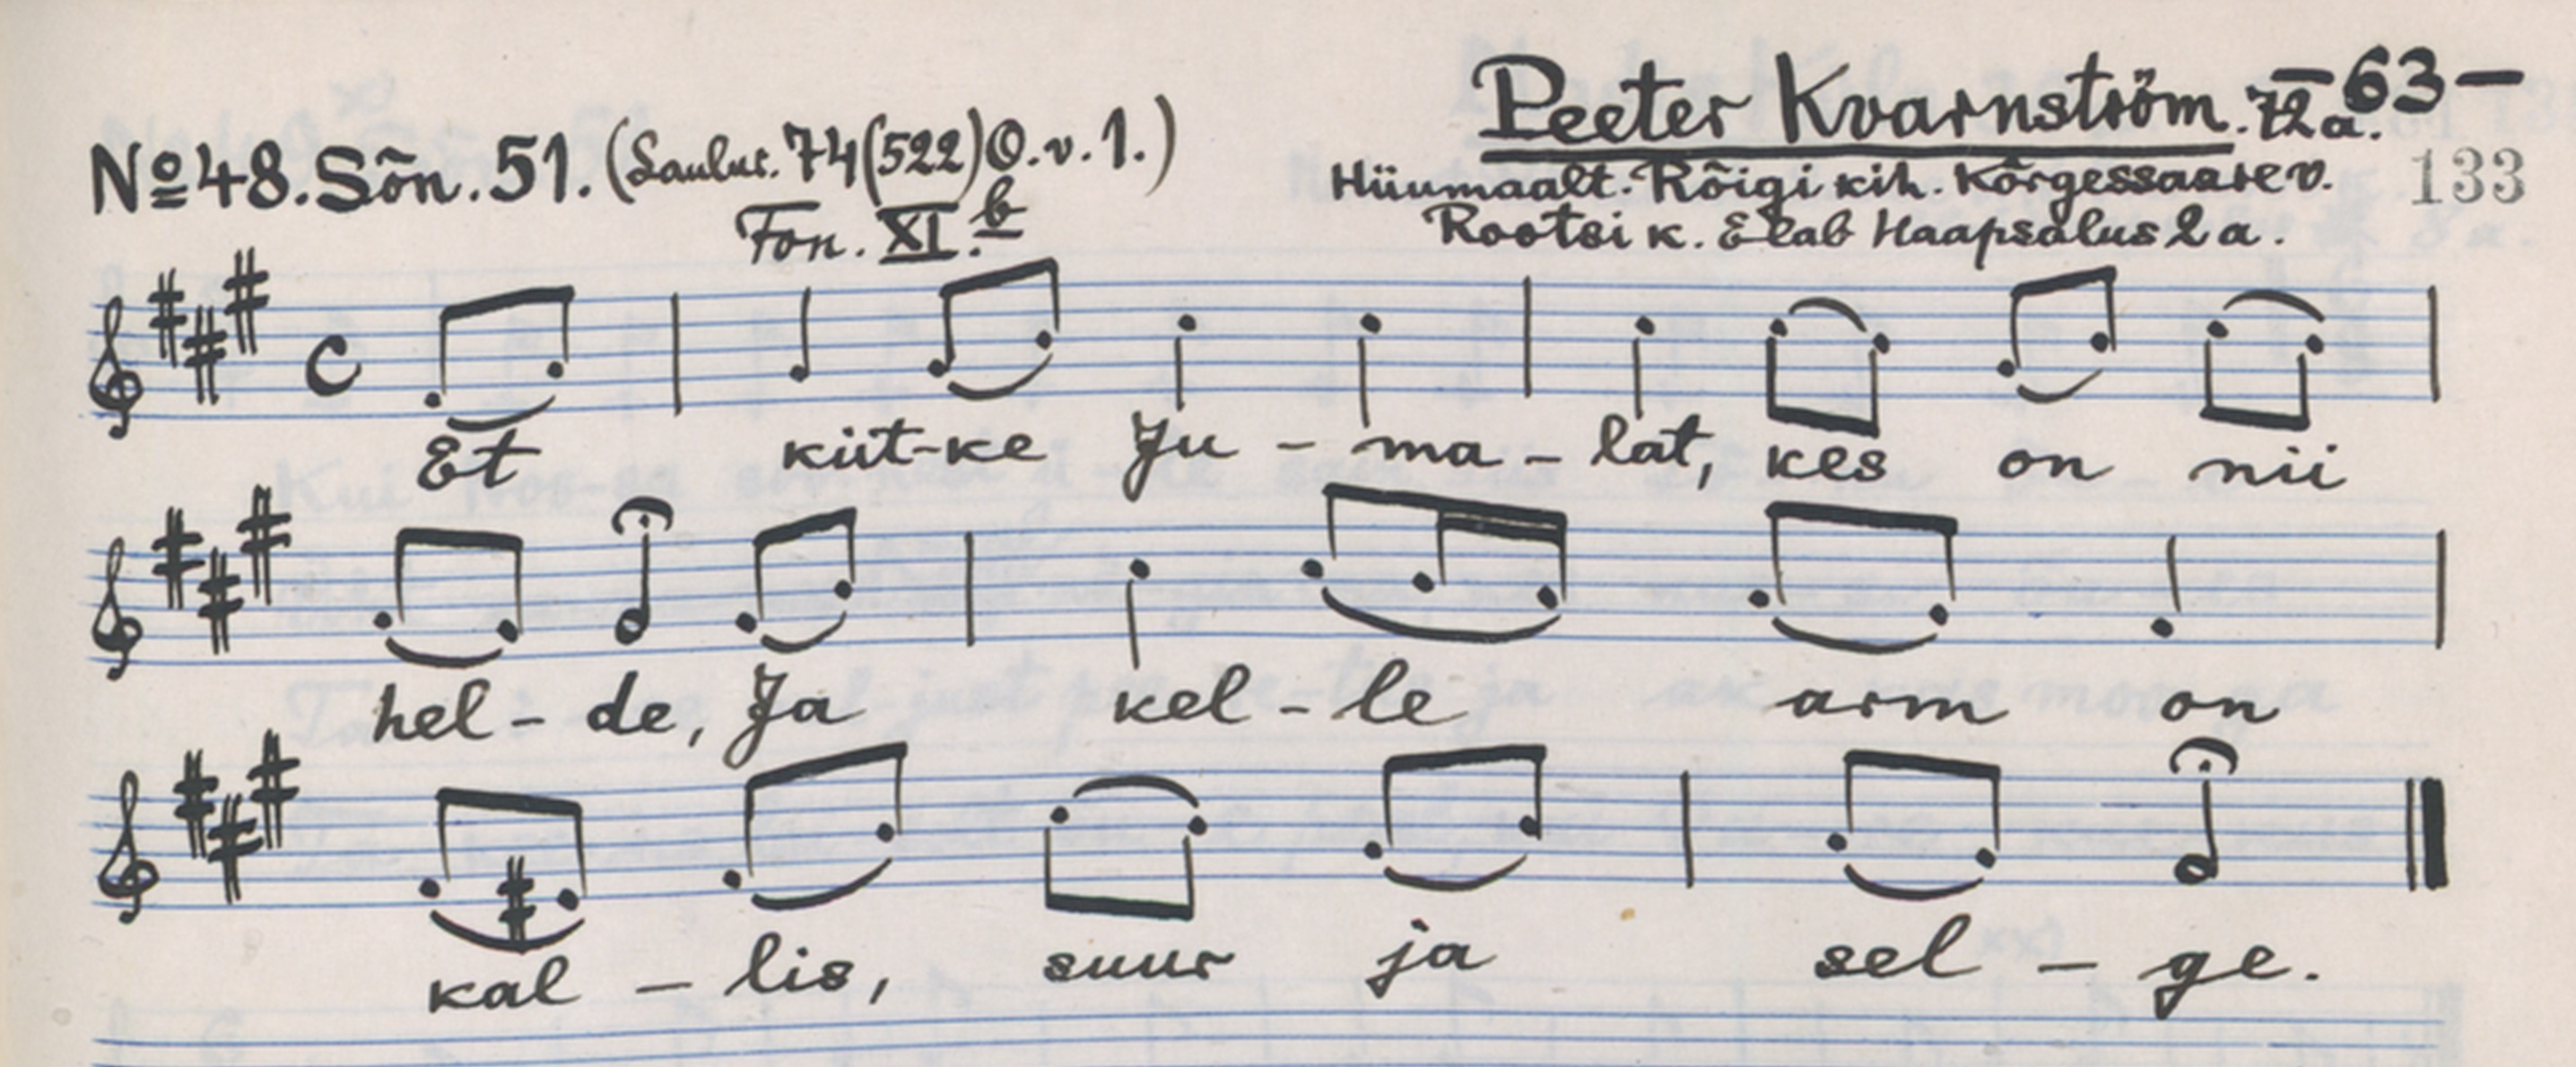 Peeter Kvarnström. 72 a. — 63 —
№ 48. Sõn. 51. (Laulur. 74 (522) O. v. 1.)
Hiiumaalt. Rõigi kih. Kõrgessaare v. 133
Fon. XI. b
Rootsi k. Elab Haapsalus 2 a.
C
Et kiit-ke Ju - ma - lat, kes on nii
hel - de, Ja kel - le arm on
kal - lis, suur ja sel - ge.